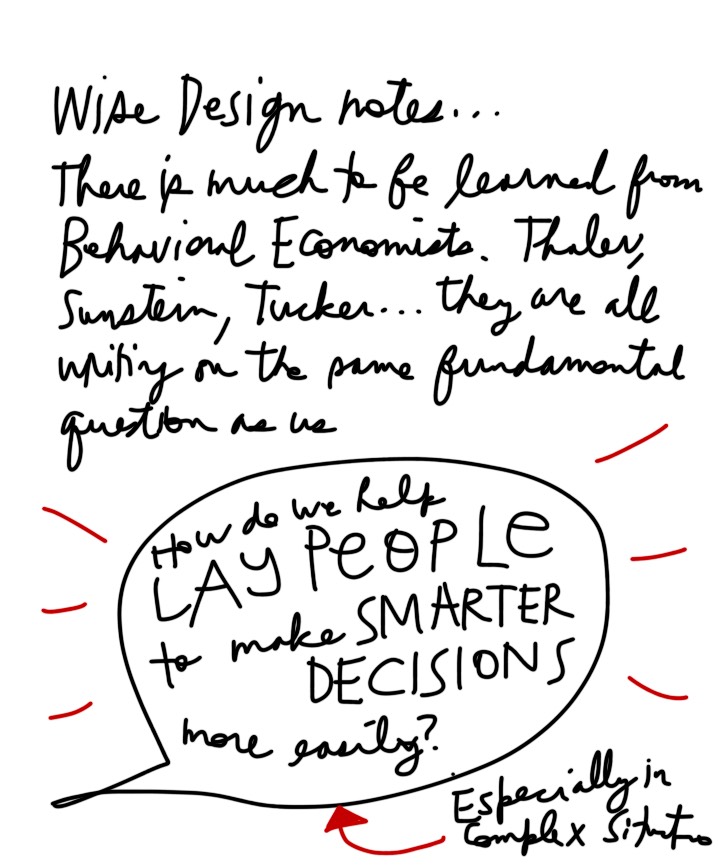 Wise Design notes...
There is much to be learned from
Behavioral Economists. Thaler,
Sunstein, Tucker... they are all
writing on the same fundamental
question as us
How do we help
LAY PEOPLE
to make SMARTER
DECISIONS
more easily?
Especially in
Complex Situations